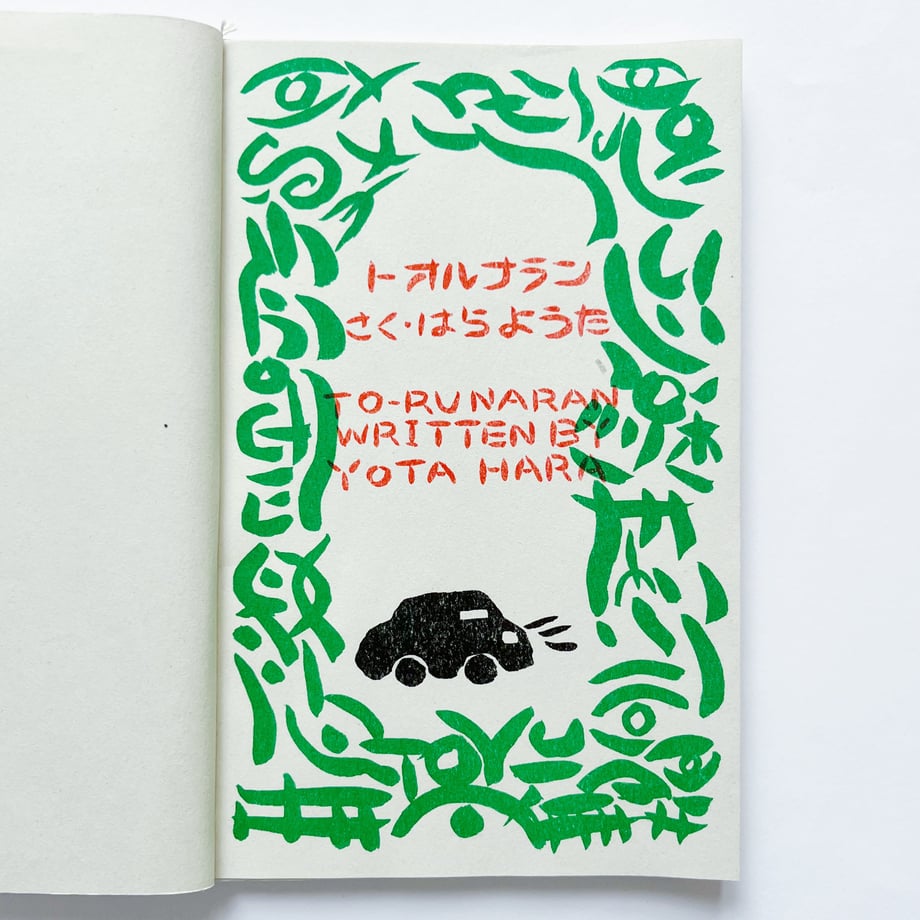 トオルナラン
さく・はらようた
TO-RU NARAN
WRITTEN BY
YOTA HARA